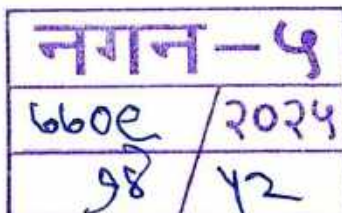 नगन-५
७७०९/२०२५
१४/५२